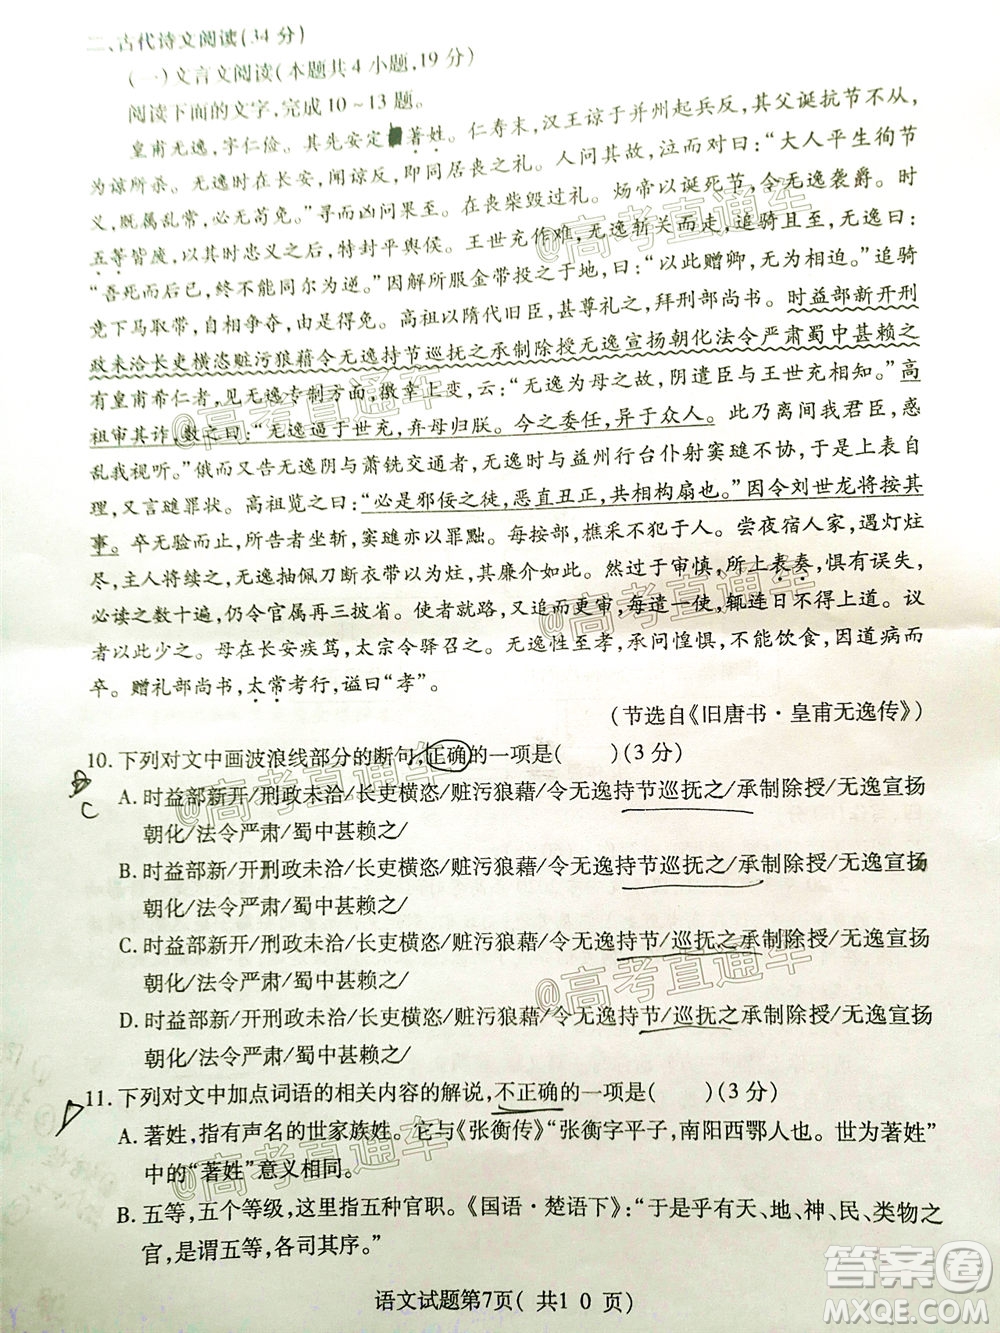 二、古代诗文阅读(34分)
(一)文言文阅读(本题共4小题,19分)
阅读下面的文字,完成10~13题。
皇甫无逸,字仁俭。其先安定著姓。仁寿末,汉王谅于并州起兵反,其父诞抗节不从,
为谅所杀。无逸在长安,闻谅反,即同居丧之礼。人问其故,泣而对曰:“大人平生徇节
义,既属乱常,必无苟免。”寻而凶问果至。在丧柴毁过礼。炀帝以诞死节,令无逸袭爵。时
五等皆废,以其时忠义之后,特封平舆侯。王世充作难,无逸斩关而走,追骑且至,无逸曰:
“吾死而后已,终不能同尔为逆。”因解所服金带投之于地,曰:“以此赠卿,无为相迫。”追骑
竞下马取带,自相争夺,由是得免。高祖以隋代旧臣,甚尊礼之,拜刑部尚书。时益部新开刑
政未洽长吏横恣赃污狼藉令无逸持节巡抚之承制除授无逸宣扬朝化法令严肃蜀中甚赖之
有皇甫希仁者,见无逸专制方面,徼幸上变,云:“无逸为母之故,阴遣臣与王世充相知。”高
祖审其诈,数之曰:“无逸逼于世充,弃母归朕。今之委任,异于众人。此乃离间我君臣,惑
乱我视听。”俄而又告无逸阴与萧铣交通者,无逸时与益州行台仆射窦琎不协,于是上表自
理,又言琎罪状。高祖览之曰:“必是邪佞之徒,恶直丑正,共相构扇也。”因令刘世龙将按其
事。卒无验而止,所告者坐斩,窦琎亦以罪黜。每按部,樵采不犯于人。尝夜宿人家,遇灯炷
尽,主人将续之,无逸抽佩刀断衣带以为炷,其廉介如此。然过于审慎,所上表奏,惧有误失,
必读之数十遍,仍令官属再三披省。使者就路,又追而更审,每遣一使,辄连日不得上道。议
者以此少之。母在长安疾笃,太宗令驿召之。无逸性至孝,承问惶惧,不能饮食,因道病而
卒。赠礼部尚书,太常考行,谥曰“孝”。
(节选自《旧唐书·皇甫无逸传》)
10. 下列对文中画波浪线部分的断句,正确的一项是(    )(3分)
C
A. 时益部新开/刑政未洽/长吏横恣/赃污狼藉/令无逸持节巡抚之/承制除授/无逸宣扬
朝化/法令严肃/蜀中甚赖之/
B. 时益部新开/刑政未洽/长吏横恣/赃污狼藉/令无逸持节巡抚/之承制除授/无逸宣扬
朝化/法令严肃/蜀中甚赖之/
C. 时益部新/开刑政未洽/长吏横恣/赃污狼藉/令无逸持节/巡抚之承制除授/无逸宣扬
朝化/法令严肃/蜀中甚赖之/
D. 时益部新/开刑政未洽/长吏横恣/赃污狼藉/令无逸持节/巡抚之/承制除授/无逸宣扬
朝化/法令严肃/蜀中甚赖之/
11. 下列对文中加点词语的相关内容的解说,不正确的一项是(    )(3分)
A. 著姓,有声名的世家族姓。它与《张衡传》“张衡字平子,南阳西鄂人也。世为著姓”
中的“著姓”意义相同。
B. 五等,五个等级,这里指五种官职。《国语·楚语下》:“于是乎有天、地、神、民、类物之
官,是谓五等,各司其序。”
语文试题第7页( 共1 0 页)
@高考直通车
@高考直通车
@高考直通车
@高考直通车
@高考直通车
@高考直通车
答案圈
MXQE.COM